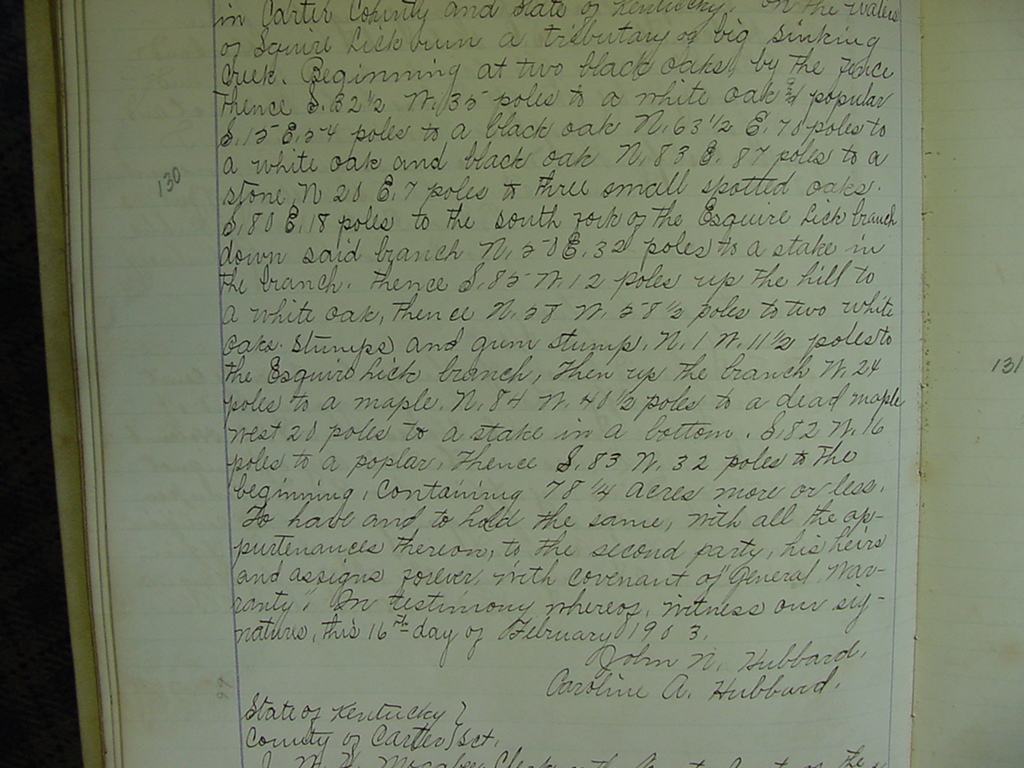 in Carter County and State of Kentucky. On the waters
of Squire Lick brun a tributary of big Sinking
Creek. Beginning at two black oaks, by the fence
thence S. 32 1/2 W. 35 poles to a white oak & popular
S. 15 E. 54 poles to a black oak N. 63 1/2 E. 70 poles to
a white oak and black oak N. 83 E. 87 poles to a
stone, N 20 E. 7 poles to three small spotted oaks.
S. 80 E. 18 poles to the south fork of the Esquire Lick branch
down said branch N. 50 E. 32 poles to a stake in
the branch. thence S. 85 W. 12 poles up the hill to
a white oak, thence N. 58 W. 58 1/2 poles to two white
oaks stumps and gum stump, N. 1 W. 11 1/2 poles to
the Esquire Lick branch, then up the branch W. 24
poles to a maple. N. 84 W. 40 1/2 poles to a dead maple
West 20 poles to a stake in a bottom. S. 82 W. 16
poles to a poplar, thence S. 83 W. 32 poles to the
beginning, containing 78 1/4 acres more or less.
To have and to hold the same, with all the ap-
purtenances thereon, to the second party, his heirs
and assigns forever, with covenant of "General War-
ranty". In testimony whereof, witness our sig-
natures, this 16th day of February 1903.
John N. Hubbard.
Caroline A. Hubbard.
State of Kentucky }
County of Carter } Sct.
Clerk
of the
130
131